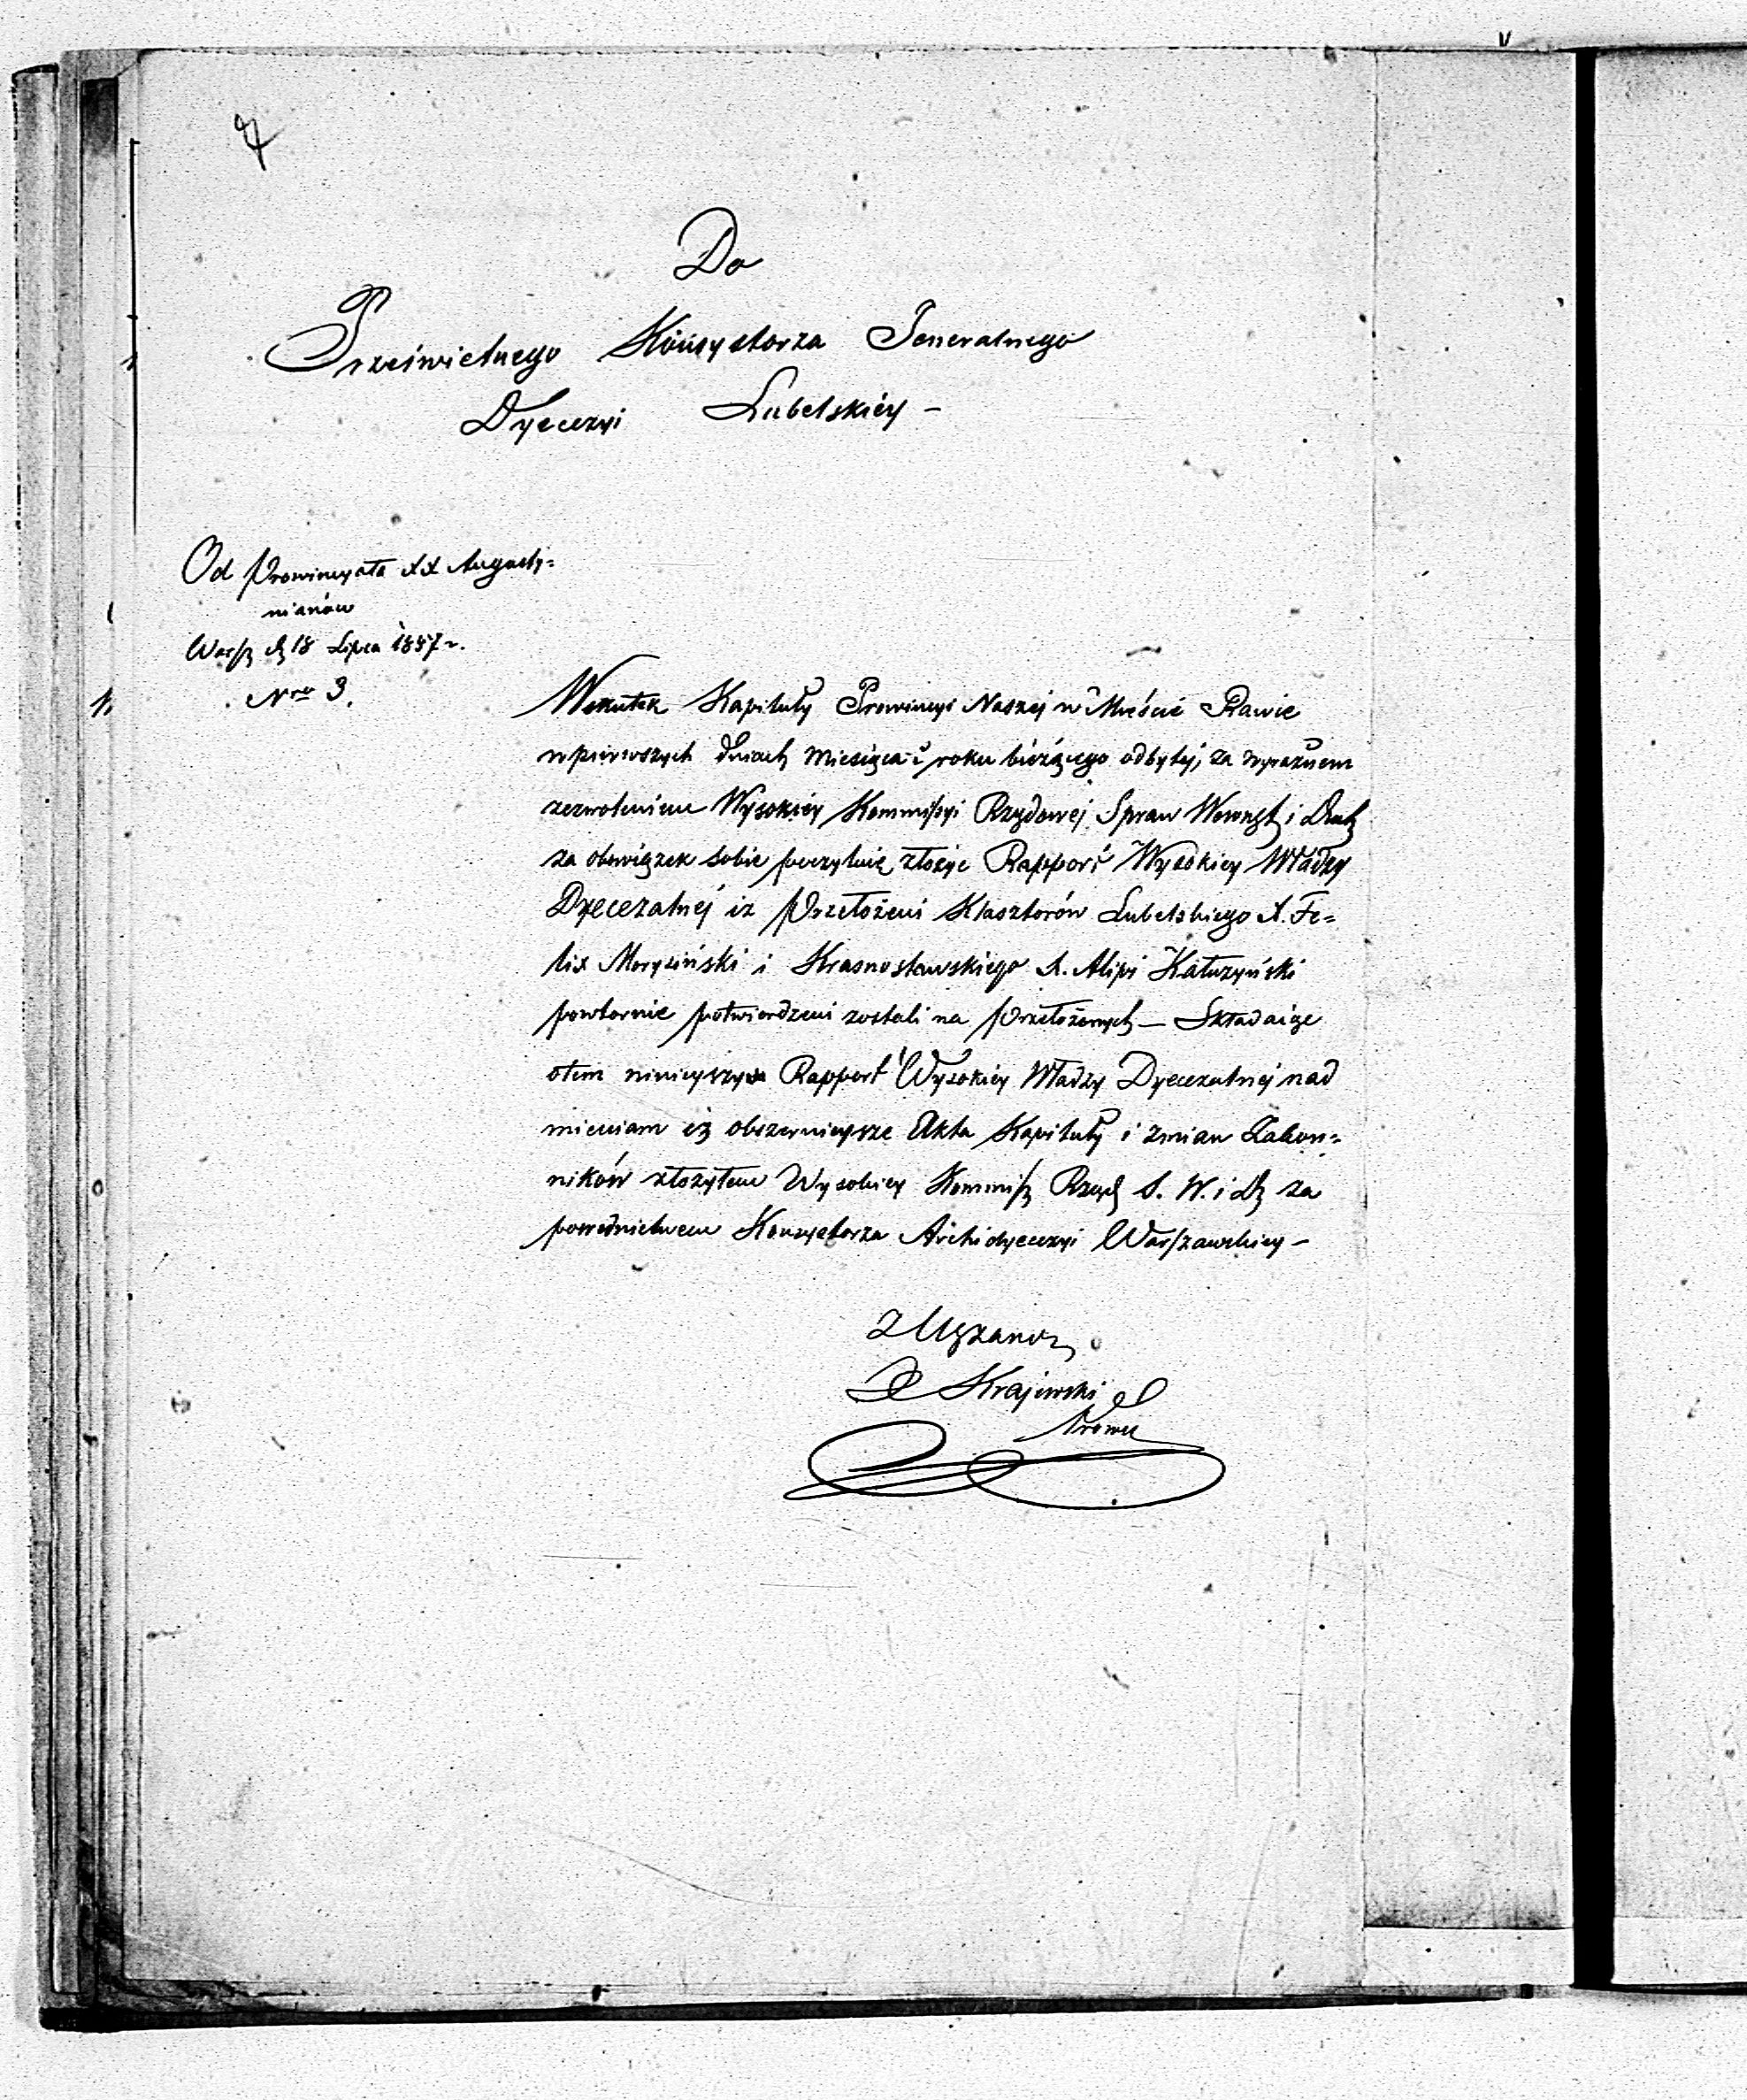 Do
Prześwietnego Konsystorza Jeneralnego
Dyecezyi Lubelskiey –
Od Prowincyała XX Augusty=
nianów
Warsz d 18 Lipca 1847 r.
Nro 3.
Wskutek Kapituły Prowincyi Naszej w Mieście Rawie
w pierwszych dniach miesiąca i roku bieżącego odbytej, za wyraznem
zezwoleniem Wysokiey Kommissyi Rządowej Spraw Wewngt i Duch
za obowiązek sobie poczytuię złożyc Rapport Wysokiey Władzy
Dyecezalnéj iz Przełożeni Klasztorów Lubelskiego X. Fe=
lix Moryciński i Krasnostawskiego X. Alipi Kałuzyński
powtornie potwierdzeni zostali na Przełożonych — Składaiąc
otem ninieyszym Rapport Wysokiey Władzy Dyecezalnej nad
mieniam iż obszernieysze Akta Kapituły i zmian Zakon=
ników złożyłem Wysokiey Kommiss Rząd S. W. i D za
posrednictwem Konsystorza Archidyecezyi Warszawskiey –
Krajewski
Prowin